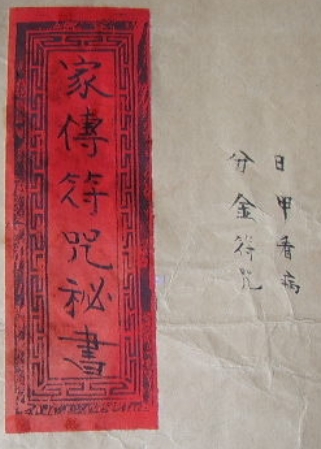 日甲看病
分金符咒
家傳符咒祕書